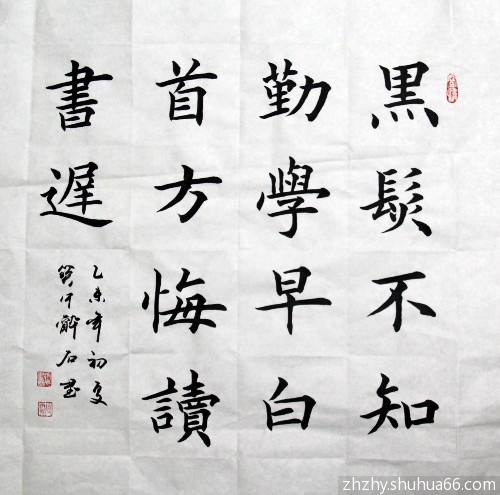 黑髮不知
勤學早白
首方悔讀
書遲
乙未年初夏
石書
zhzhy.shuhua66.com